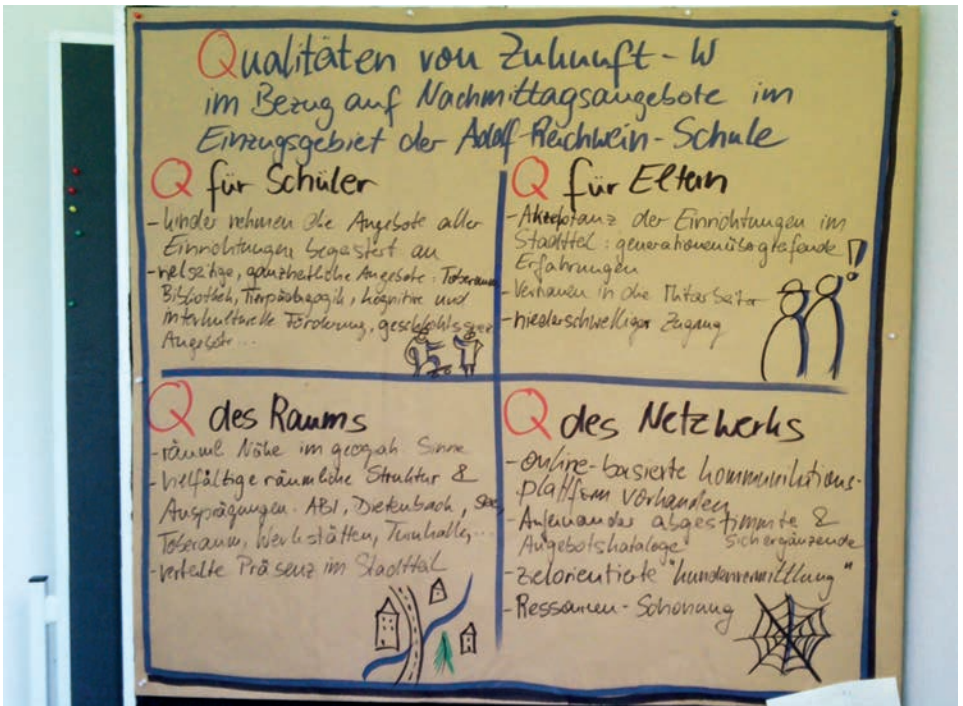 Qualitäten von Zukunft - W
im Bezug auf Nachmittagsangebote im
Einzugsgebiet der Adolf-Reichwein-Schule
Q für Schüler
- Kinder nehmen die Angebote aller
Einrichtungen begeistert an
- vielseitige, ganzheitliche Angebote: Toberaum,
Bibliothek, Tierpädagogik, kognitive und
interkulturelle Förderung, geschlechtsspez.
Angebote...
Q für Eltern
- Akzeptanz der Einrichtungen im
Stadtteil: generationenübergreifende
Erfahrungen
- Vertrauen in die Mitarbeiter
- niederschwelliger Zugang
!
Q des Raums
- räuml Nähe im geograph Sinne
- vielfältige räumliche Struktur &
Ausprägungen. ABI, Dietenbach, See,
Toberaum, Werkstätten, Turnhalle,...
- verteilte Präsenz im Stadtteil
Q des Netzwerks
- online-basierte Kommunikations-
plattform vorhanden
- Aufeinander abgestimmte &
Angebotskataloge sich ergänzende
- zielorientierte "Kundenvermittlung"
- Ressourcen-Schonung